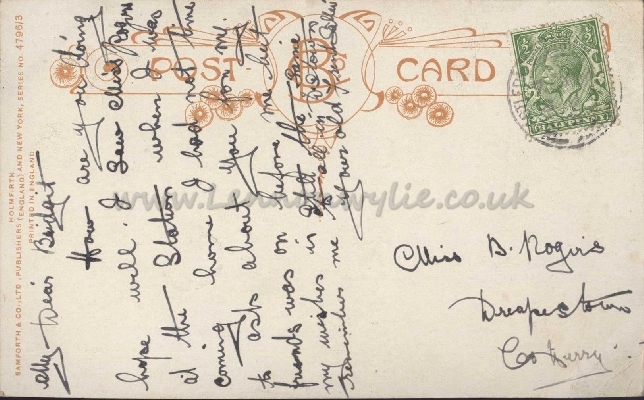 POST CARD
B & Co
HOLMFIRTH
BAMFORTH & CO., LTD., PUBLISHERS (ENGLAND) AND NEW YORK, SERIES NO. 4796/3
PRINTED IN ENGLAND
My Dear Bridget
How are you doing
hope well. I saw Miss
at the Station when I was
coming home I had not time
to ask about you for my
friends was on before me. big
my wishes in
remember me to all in
your old friend
Miss B. Rogers
Drapestown
Co Derry
www.Lennonwylie.co.uk